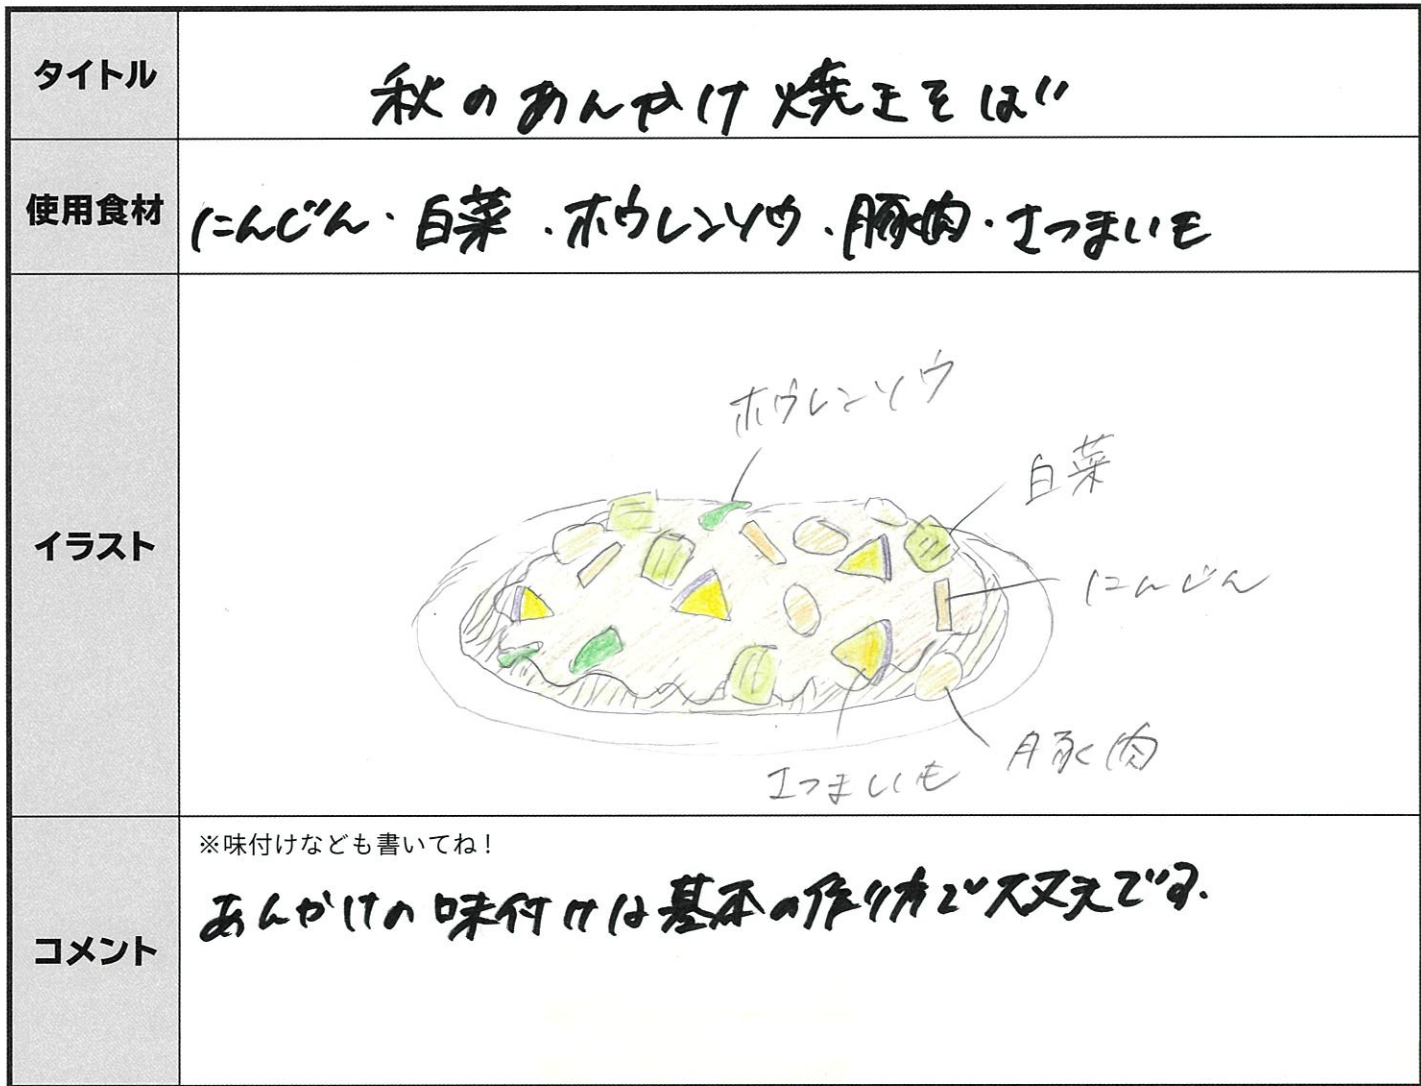 タイトル
秋のあんかけ焼きそば
使用食材
にんじん・白菜・ホウレンソウ・豚肉・さつまいも
イラスト
ホウレンソウ
白菜
にんじん
豚肉
さつまいも
コメント
※味付けなども書いてね！
あんかけの味付けは基本の作り方で大丈夫です.